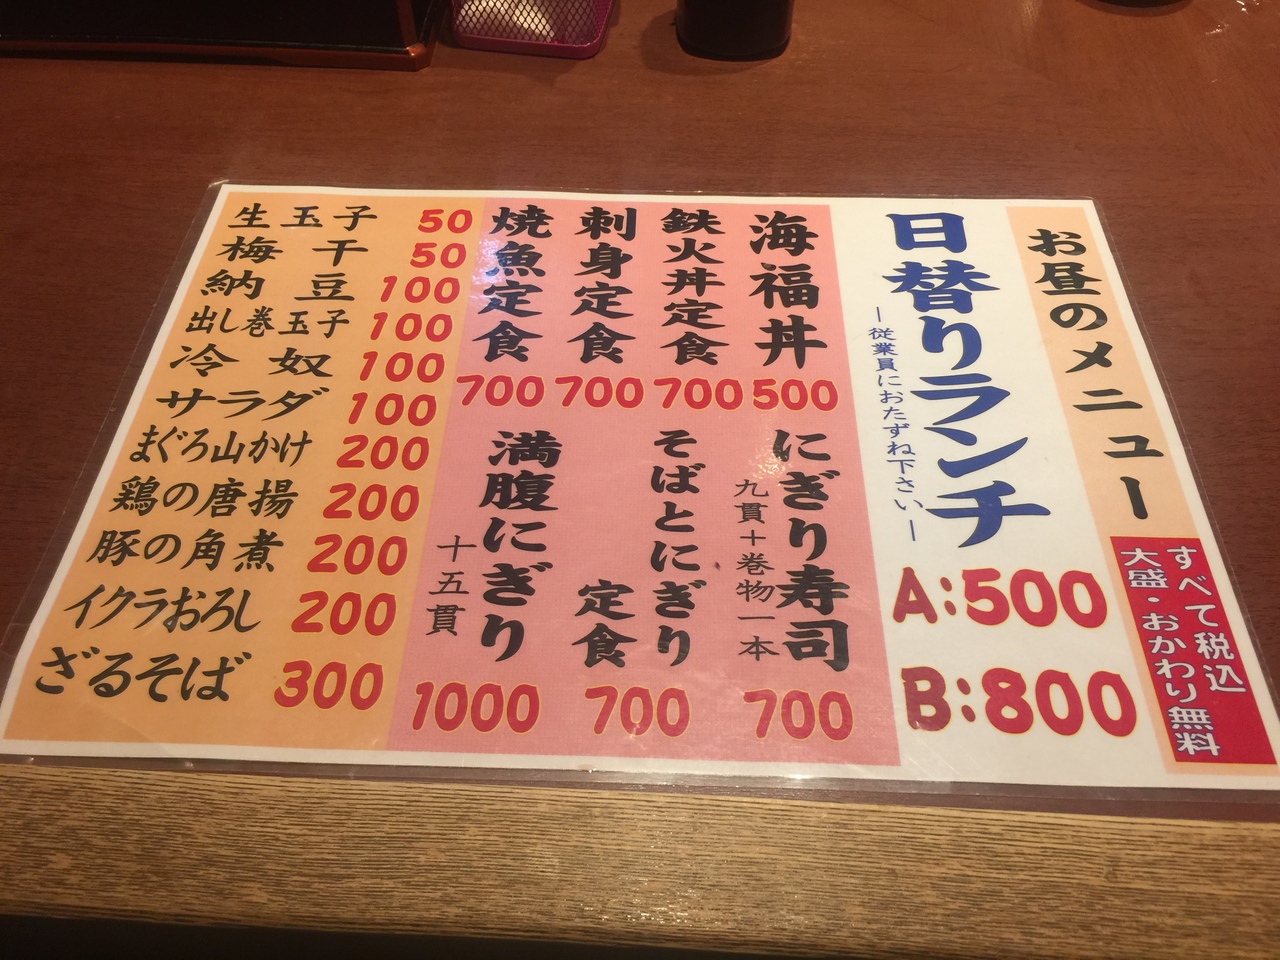 お昼のメニュー
すべて税込
大盛・おかわり無料
日替りランチ
―従業員におたずね下さい―
A:500
B:800
海福丼
500
鉄火丼定食
700
刺身定食
700
焼魚定食
700
にぎり寿司
九貫+巻物一本
700
そばとにぎり
定食
700
満腹にぎり
十五貫
1000
生玉子 50
梅干 50
納豆 100
出し巻玉子 100
冷奴 100
サラダ 100
まぐろ山かけ 200
鶏の唐揚 200
豚の角煮 200
イクラおろし 200
ざるそば 300